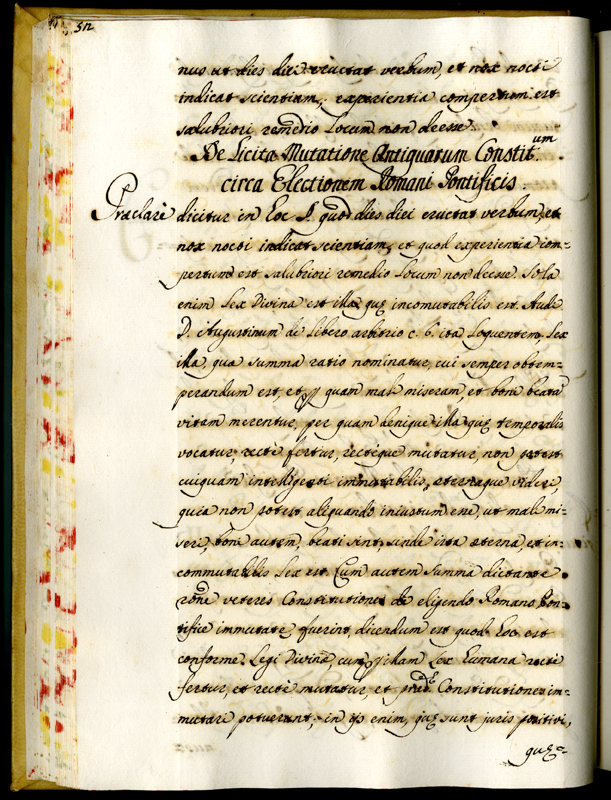 52
nus ut dies diei eructat verbum, et nox nocti
indicat scientiam; experientia compertum est
salubriori remedio Locum non deesse.
De Licita Mutatione Antiquarum Constit.um
circa Electionem Romani Pontificis.
Praeclarè dicitur in hoc §. quod dies diei eructat verbum, et
nox nocti indicat scientiam, et quod experientia com=
pertum est salubriori remedio Locum non deesse. Sola
enim Lex Divina est illa quę incomutabilis est. Audi
D. Augustinum de Libero arbitrio c. 6. ita Loquentem, Lex
illa, qua summa ratio nominatur, cui semper obtem=
perandum est, et p quam mali miseram, et boni beatā
vitam merentur, per quam denique illa quę temporalis
vocatur rectè fertur, rectèque mutatur, non potest
cuiquam intelligenti immutabilis, aeternaque videri,
quia non potest aliquando iniustum esse, ut mali mi=
seri, boni autem, beati sint, unde ista aeterna, et in=
commutabilis Lex est. Cum autem summa dictante
rōne veteris Constitutiones de eligendo Romano Pon=
tifice immutatę fuerint, dicendum est quod hoc est
conforme Legi Divinę, cum p illam Lex humana rectè
fertur, et rectè mutatur, et pred.ę Constitutiones im=
mutari potuerunt, in ijs enim, quę sunt juris positivi,
quę=